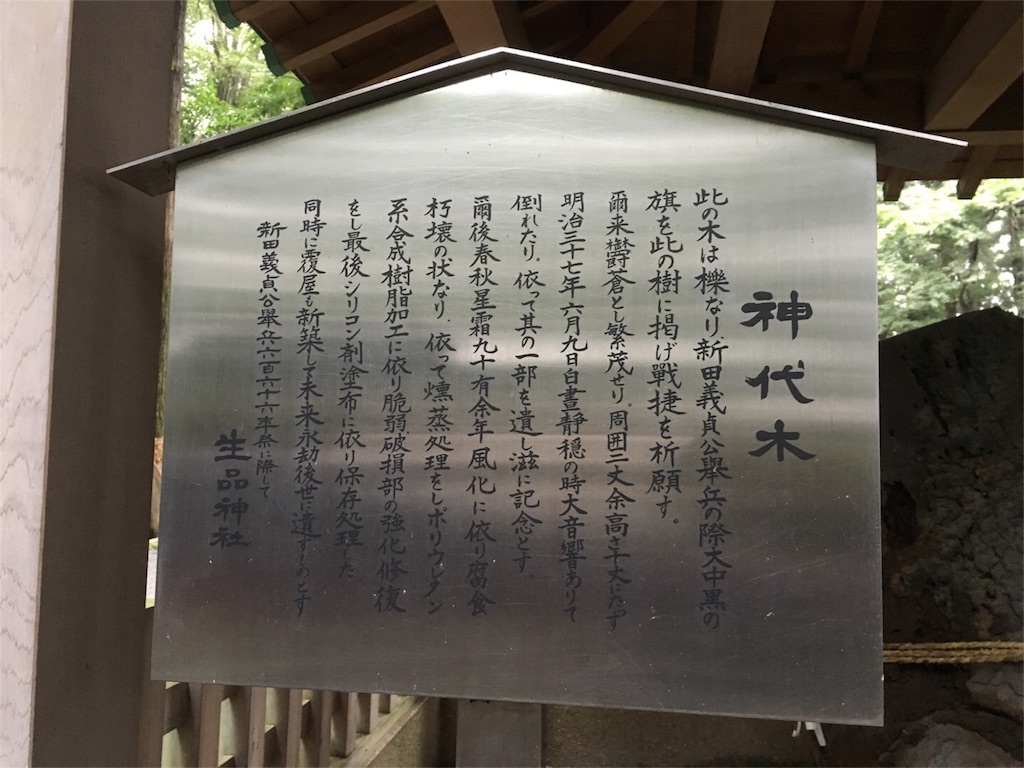 神代木
此の木は櫟なり新田義貞公舉兵の際大中黒の
旗を此の樹に掲げ戰捷を祈願す。
爾来欝蒼とし繁茂せり。周囲三丈余高さ十丈にたす
明治三十七年六月九日白晝静穏の時大音響ありて
倒れたり。依って其の一部を遺し滋に記念とす。
爾後春秋星霜九十有余年風化に依り腐食
朽壊の状なり。依って燻蒸処理をしポリウレタン
系合成樹脂加工に依り脆弱破損部の強化修復
をし最後シリコン剤塗布に依り保存処理した
同時に覆屋も新築して未来永劫後世に遺すものとす
新田義貞公舉兵六百六十六年祭に際して
生品神社